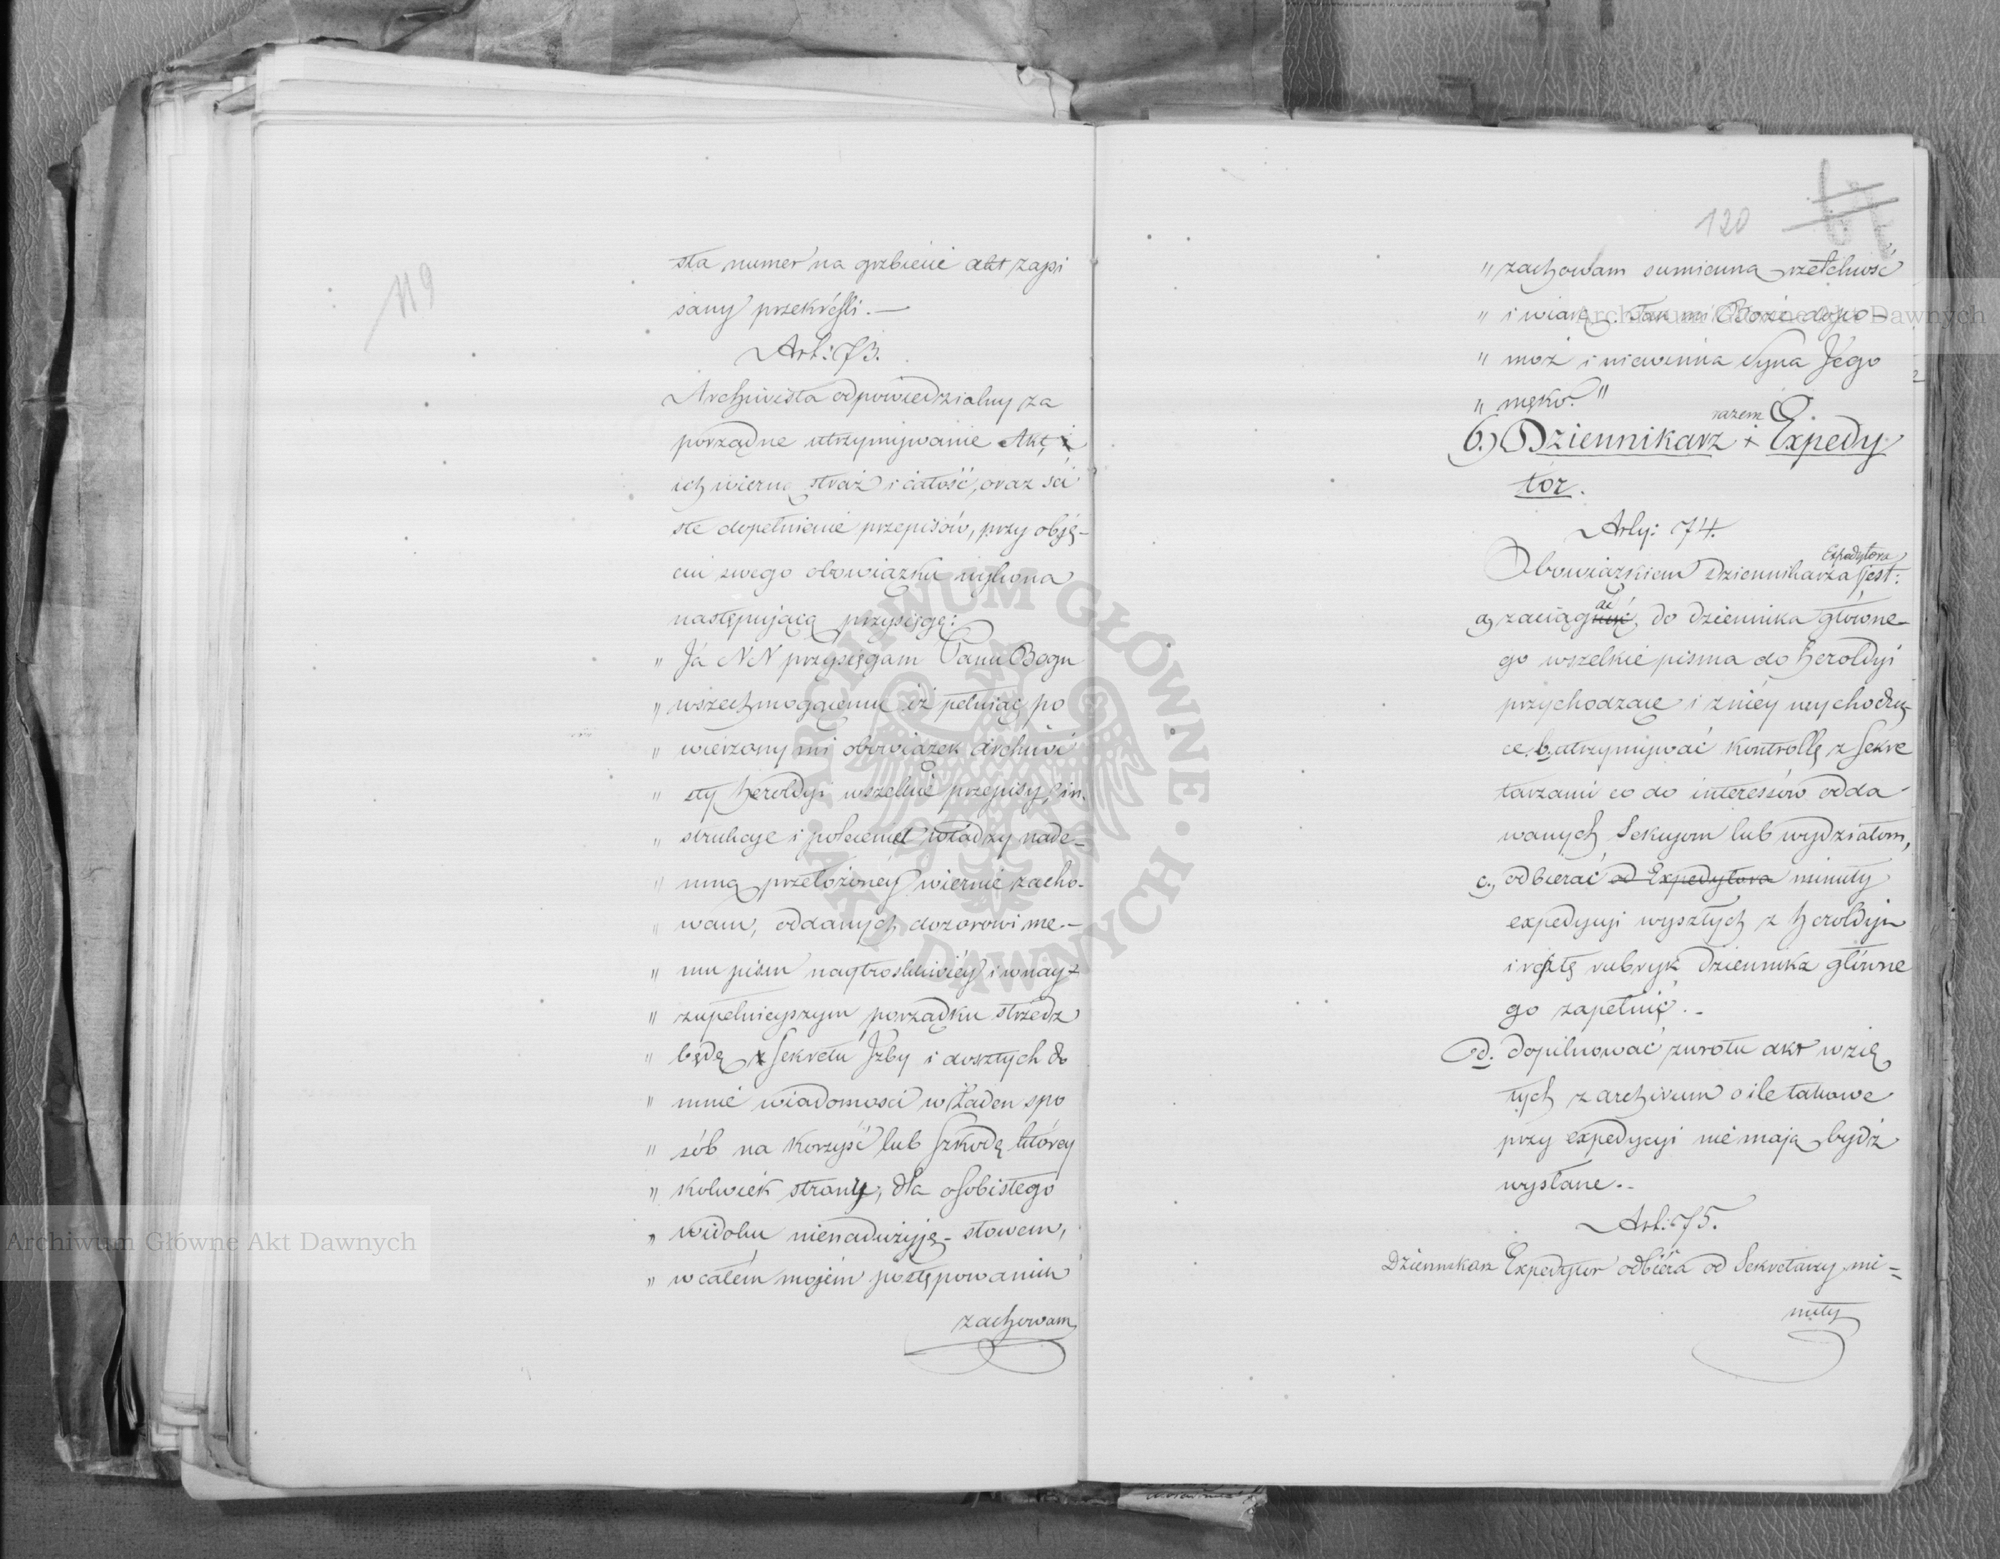 119
sta numer na grzbiecie akt zapi
sany przekréśli. —
Art: 73.
Archiwista odpowiedzialny za
porządne utrzymywanie Akt, i
ich wierną straż i całość, oraz ści
słe dopełnianie przepisów, przy obję-
ciu swego obowiązku wykona
następującą przysięgę:
„ Ja NN przysięgam Panu Bogu
„ wszechmogącemu iż pełniąc po
„ wierzony mi obowiązek Archiwi
„ sty Heroldyi wszelkie przepisy, in-
„ strukcye i polecenia władzy nade-
„ mną przełożonéy wiernie zacho-
„ wam, oddanych dozorowi me-
„ mu pism naytroskliwiéy i w nay-
„ zupełnieyszym porządku strzedz
„ będę, Sekretu Izby i doszłych do
„ mnie wiadomości w żaden spo
„ sób na korzyść lub szkodę którey
„ kolwiek strony, dla osobistego
„ widoku nienadużyję - słowem,
„ w całém mojém postępowaniu
zachowam
120
„ zachowam sumienną rzetelność
„ i wiarę. Tak mi Boże dopo-
„ móż i niewinna Syna Jego
„ męko."
razem
6.) Dziennikarz i Expedy
tor.
Arty: 74.
Expedytora
Obowiązkiem Dziennikarza jest:
a, zaciągać do Dziennika główne-
go wszelkie pisma do Heroldyi
przychodzące i z niéy wychodzą-
ce, b. utrzymywać kontrollę z Sekre
tarzami co do interessów odda-
wanych Sekcyom lub wydziałom,
c, odbierać od Expedytora minuty
expedycyi wyszłych z Heroldyi
i resztę rubryk Dziennika główne
go zapełnić. -
d. dopilnować zwrotu akt wzię
tych z archivum o ile takowe
przy expedycyi nie mają bydź
wysłane. -
Art: 75.
Dziennikarz Expedytor odbiera od Sekretarzy mi=
nuty
Archiwum Główne Akt Dawnych
Archiwum Główne Akt Dawnych
ARCHIWUM GŁÓWNE · AKT DAWNYCH ·